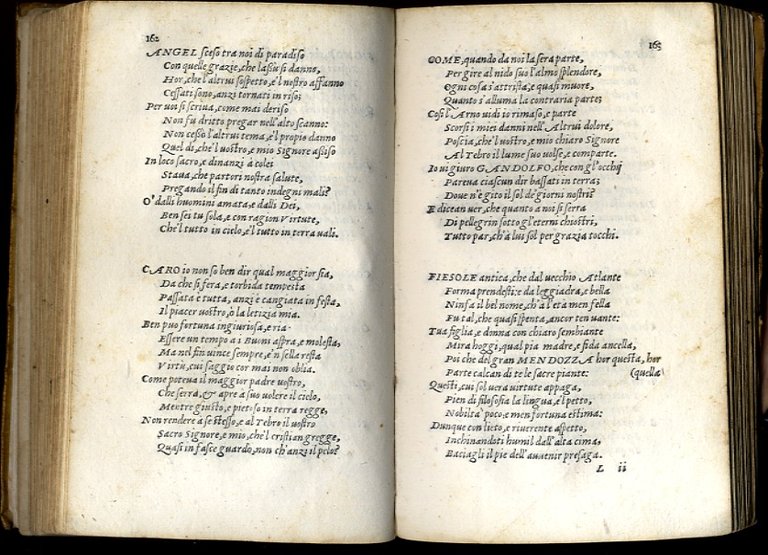 162
ANGEL sceso tra noi di paradiso
Con quelle grazie, che lassù si danno,
Hor, che l'altrui sospetto, e'l nostro affanno
Cessati sono, anzi tornati in riso;
Per voi si scriva, come mai deriso
Non fu dritto pregar nell'alto scanno:
Non cessò l'altrui tema, e'l propio danno
Quel dì, che'l vostro, e mio Signore assiso
In loco sacro, e dinanzi à colei
Stava, che partorì nostra salute,
Pregando il fin di tanto indegni mali?
O' dalli huomini amata, e dalli Dei,
Ben sei tu sola, e con ragion Virtute,
Che'l tutto in cielo, e'l tutto in terra vali.
CARO io non so ben dir qual maggior sia,
Da che sì fera, e torbida tempesta
Passata è tutta, anzi è cangiata in festa,
Il piacer vostro, ò la letizia mia.
Ben può fortuna ingiuriosa, e ria
Essere un tempo a i Buoni aspra, e molesta,
Ma nel fin vince sempre, e'n sella resta
Virtù, cui saggio cor mai non oblia.
Come poteva il maggior padre vostro,
Che serra, & apre a suo volere il cielo,
Mentre giusto, e pietoso in terra regge,
Non rendere a se stesso, e al Tebro il vostro
Sacro Signore, e mio, che'l cristian gregge,
Quasi in fasce guardò, non ch'anzi il pelo?
163
COME, quando da noi la sera parte,
Per gire al nido suo l'almo splendore,
Ogni cosa s'attrista, e quasi muore,
Quanto s'alluma la contraria parte;
Così l'Arno vidi io rimaso, e parte
Scorsi i miei danni nell'Altrui dolore,
Poscia, che'l vostro, e mio chiaro Signore
Al Tebro il lume suo volse, e comparte.
Io vi giuro GANDOLFO, che con gl'occhi
Pareva ciascun dir bassati in terra;
Dove n'è gito il sol de' giorni nostri?
E dicean ver, che quanto a noi si serra
Di pellegrin sotto gl'eterni chiostri,
Tutto par, ch'à lui sol per grazia tocchi.
FIESOLE antica, che dal vecchio Atlante
Forma prendesti: e da leggiadra, e bella
Ninfa il bel nome, ch'a l'età men fella
Fu tal, che quasi spenta, ancor ten vante:
Tua figlia, e donna con chiaro sembiante
Mira hoggi, qual pia madre, e fida ancella,
Poi che del gran MENDOZZA hor questa, hor
Parte calcan di te le sacre piante: (quella
Questi, cui sol vera virtute appaga,
Pien di filosofia la lingua, e'l petto,
Nobiltà poco, e men fortuna estima:
Dunque con lieto, e riverente aspetto,
Inchinandoti humil dell'alta cima,
Baciagli il piè dell'avvenir presaga.
L ii